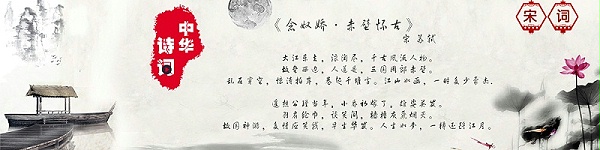 中华
诗词
《念奴娇·赤壁怀古》
宋 苏轼
宋词
大江东去，浪淘尽，千古风流人物。
故垒西边，人道是，三国周郎赤壁。
乱石穿空，惊涛拍岸，卷起千堆雪。江山如画，一时多少豪杰。
遥想公瑾当年，小乔初嫁了，雄姿英发。
羽扇纶巾，谈笑间，樯橹灰飞烟灭。
故国神游，多情应笑我，早生华发。人生如梦，一樽还酹江月。